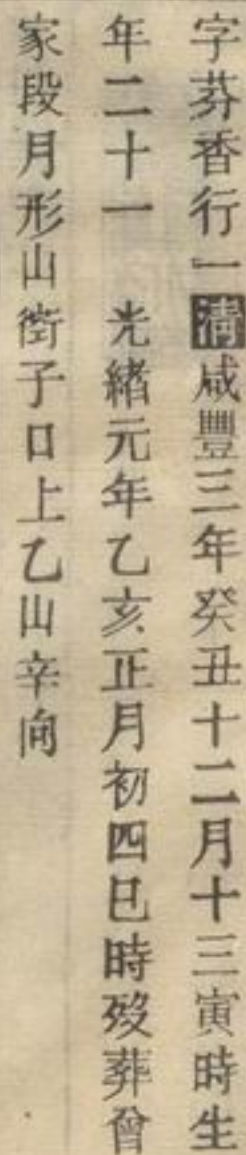 字芬香行一清咸豐三年癸丑十二月十三寅時生
年二十一　光緒元年乙亥正月初四巳時歿葬曾
家段月形山衖子口上乙山辛向